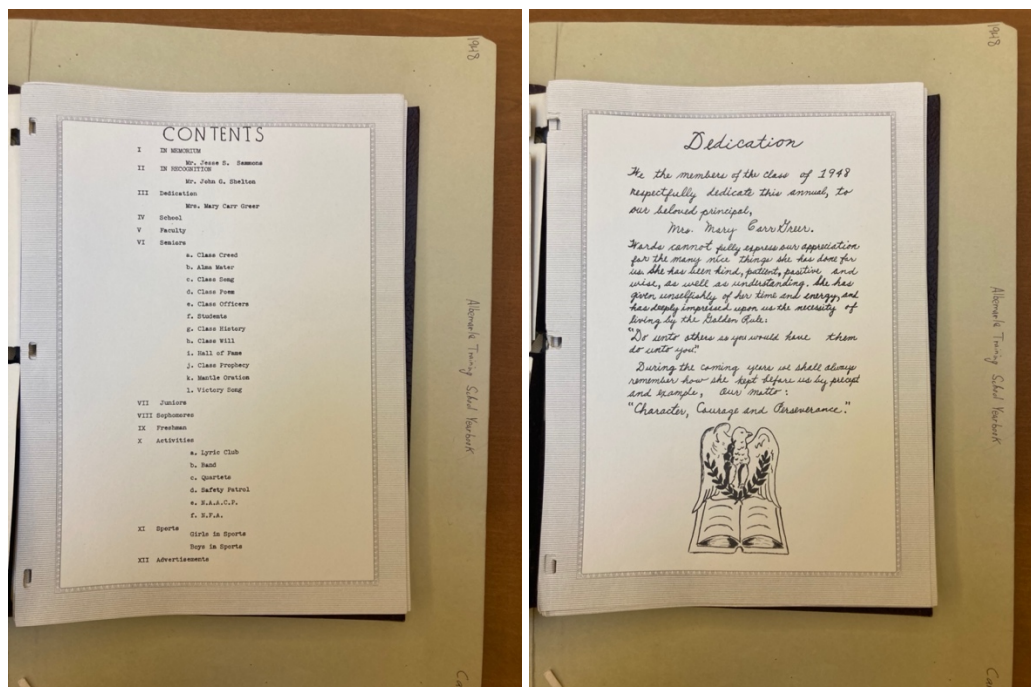 1948
CONTENTS
I IN MEMORIUM
Mr. Jesse S. Sammons
II IN RECOGNITION
Mr. John G. Shelton
III Dedication
Mrs. Mary Carr Greer
IV School
V Faculty
VI Seniors
a. Class Creed
b. Alma Mater
c. Class Song
d. Class Poem
e. Class Officers
f. Students
g. Class History
h. Class Will
i. Hall of Fame
j. Class Prophecy
k. Mantle Oration
l. Victory Song
VII Juniors
VIII Sophomores
IX Freshman
X Activities
a. Lyric Club
b. Band
c. Quartets
d. Safety Patrol
e. N.A.A.C.P.
f. N.F.A.
XI Sports
Girls in Sports
Boys in Sports
XII Advertisements
Albemarle Training School Yearbook
1948
Dedication
We the members of the class of 1948
respectfully dedicate this annual, to
our beloved principal,
Mrs. Mary Carr Greer.
Words cannot fully express our appreciation
for the many nice things she has done for
us. She has been kind, patient, positive and
wise, as well as understanding. She has
given unselfishly of her time and energy, and
has deeply impressed upon us the necessity of
living by the Golden Rule:
"Do unto others as you would have them
do unto you."
During the coming years we shall always
remember how she kept before us by precept
and example, our motto:
"Character, Courage and Perseverance."
Albemarle Training School Yearbook